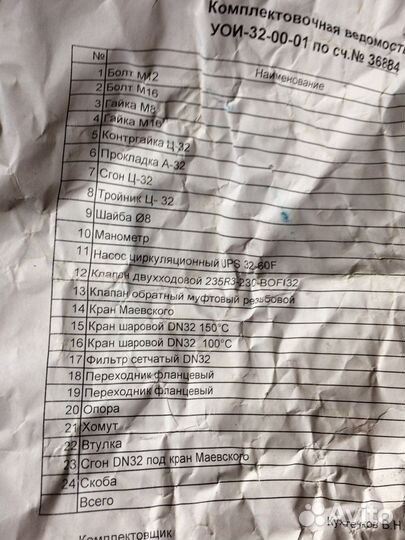 Комплектовочная ведомость
УОИ-32-00-01 по сч.№ 36884
№ Наименование
1 Болт М12
2 Болт М16
3 Гайка М8
4 Гайка М16
5 Контргайка Ц-32
6 Прокладка А-32
7 Сгон Ц-32
8 Тройник Ц- 32
9 Шайба Ø8
10 Манометр
11 Насос циркуляционный UPS 32-60F
12 Клапан двухходовой 235R3-230-BOFI32
13 Клапан обратный муфтовый резьбовой
14 Кран Маевского
15 Кран шаровой DN32 150°С
16 Кран шаровой DN32 100°С
17 Фильтр сетчатый DN32
18 Переходник фланцевый
19 Переходник фланцевый
20 Опора
21 Хомут
22 Втулка
23 Сгон DN32 под кран Маевского
24 Скоба
Всего
Комплектовщик
В.Н
Avito